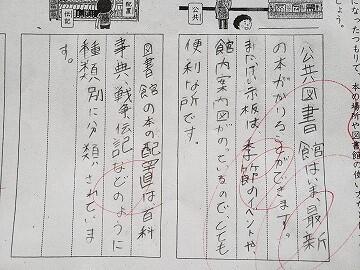 になったつもりで、本の場所や図書館の使い
しょう。
公共
公共図書館は、いま、最新
の本がかりることができます。
また、けい示板は、季節のイベントや、
館内案内図がのっているので、とても
便利な所です。
配置
伝記
図書館の本の配置は百科
事典、戦争、伝記などのように
種類別に分類されていま
す。